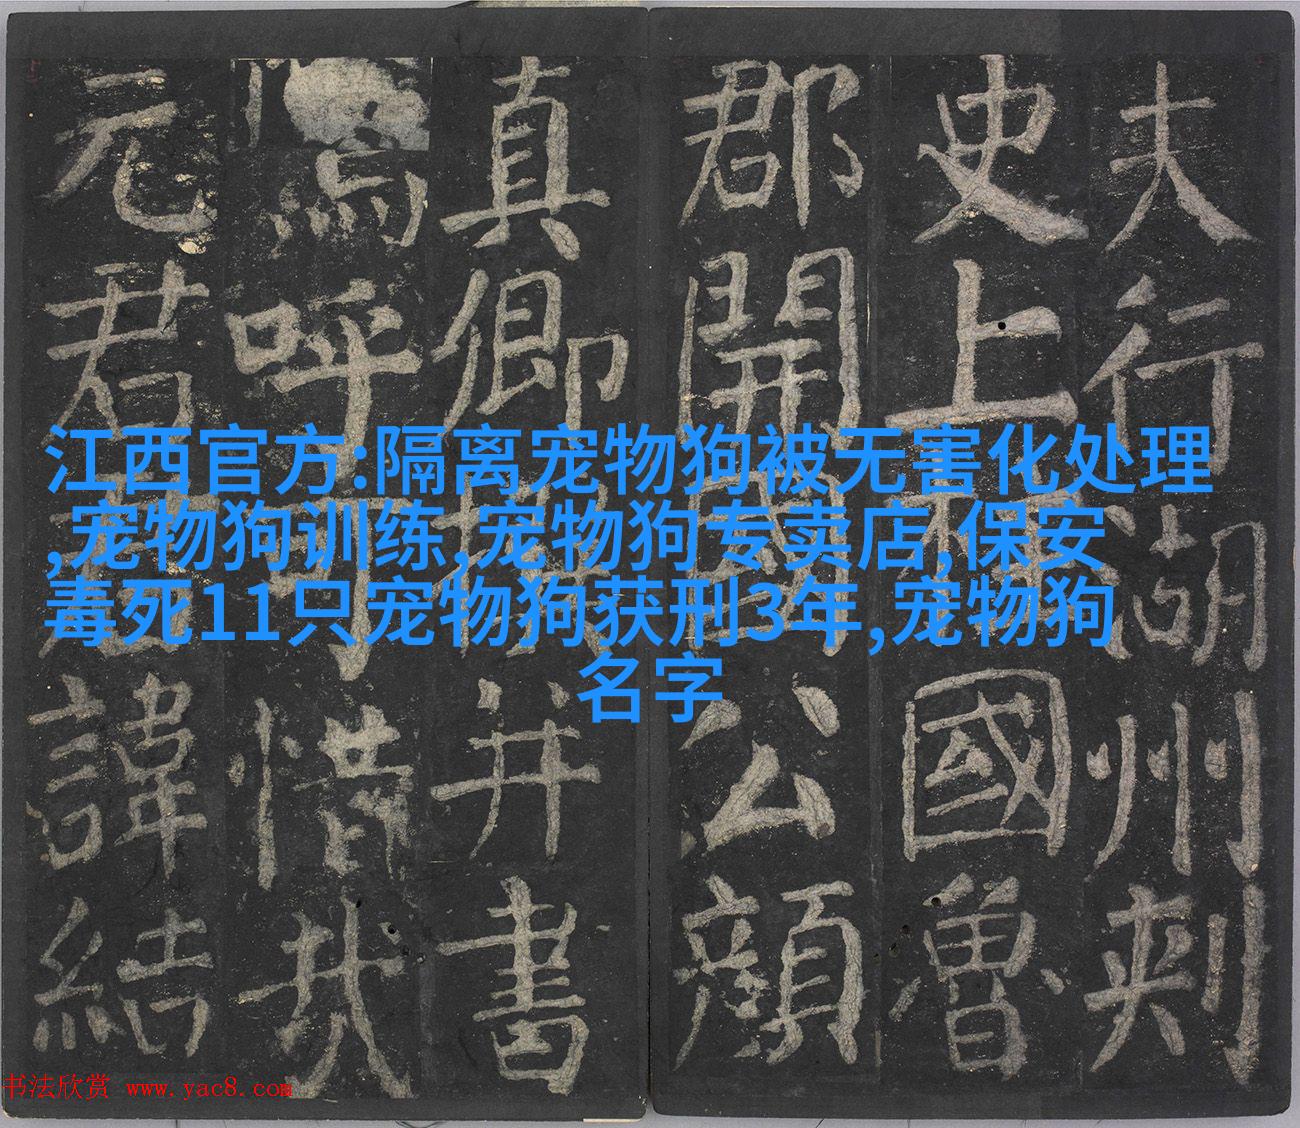 江西官方:隔离宠物狗被无害化处理
,宠物狗训练,宠物狗专卖店,保安
毒死11只宠物狗获刑3年,宠物狗
名字
夫行湖州刺
史上柱國魯
郡開國公顏
真卿撰并書
嗚呼可惜哉
元君諱結
书法欣赏 www.yac8.com